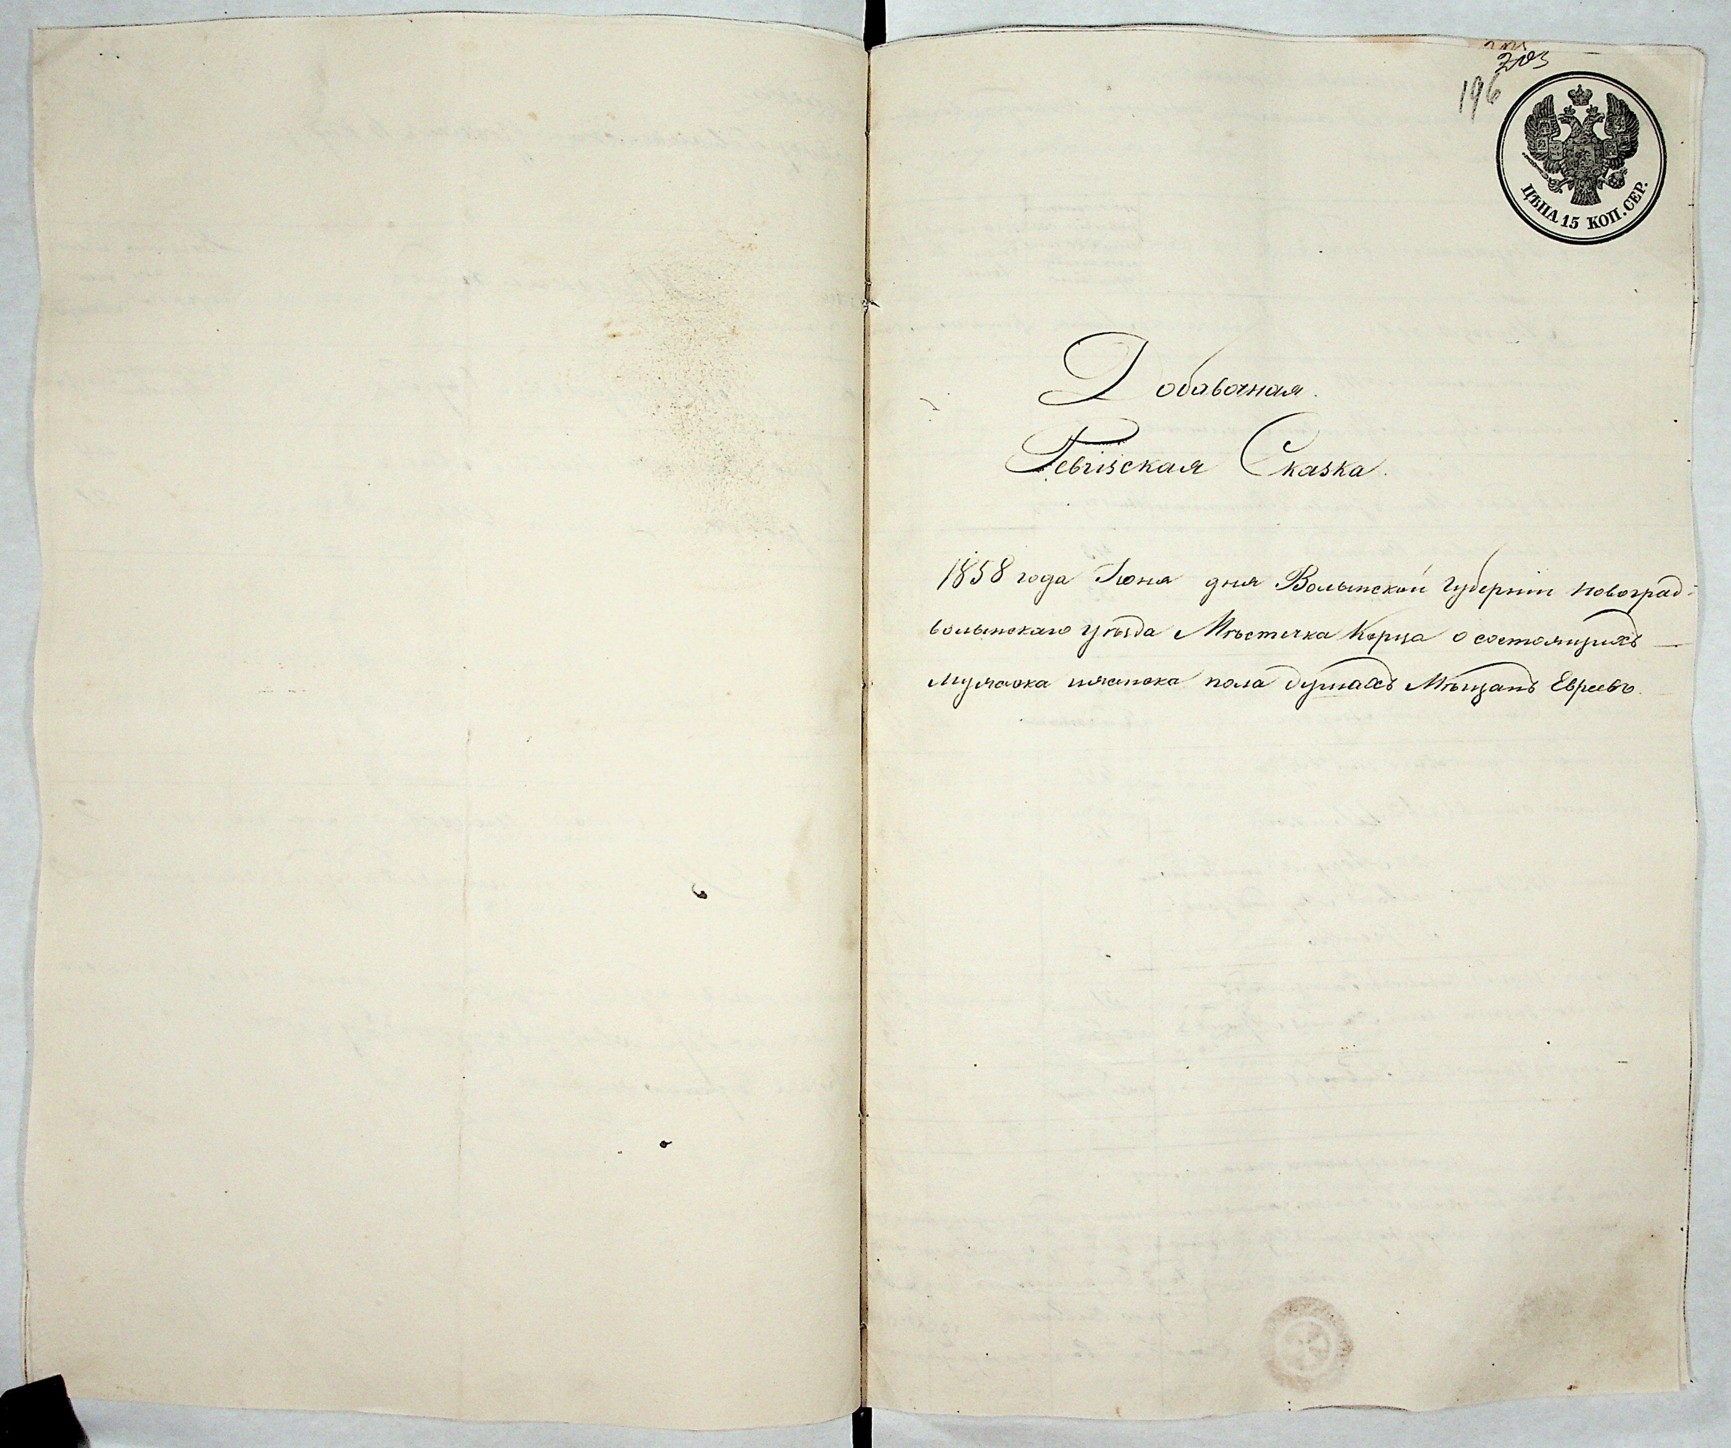 203
196
ЦѢНА 15 КОП. СЕР.
Добавочная.
Ревизская Сказка.
1858 года Іюня дня Волынской Губерніи Новоград-
волынскаго уѣзда Мѣстечка Корца о состоящихъ
мужеска иженска пола душахъ Мѣщанъ Евреевъ.